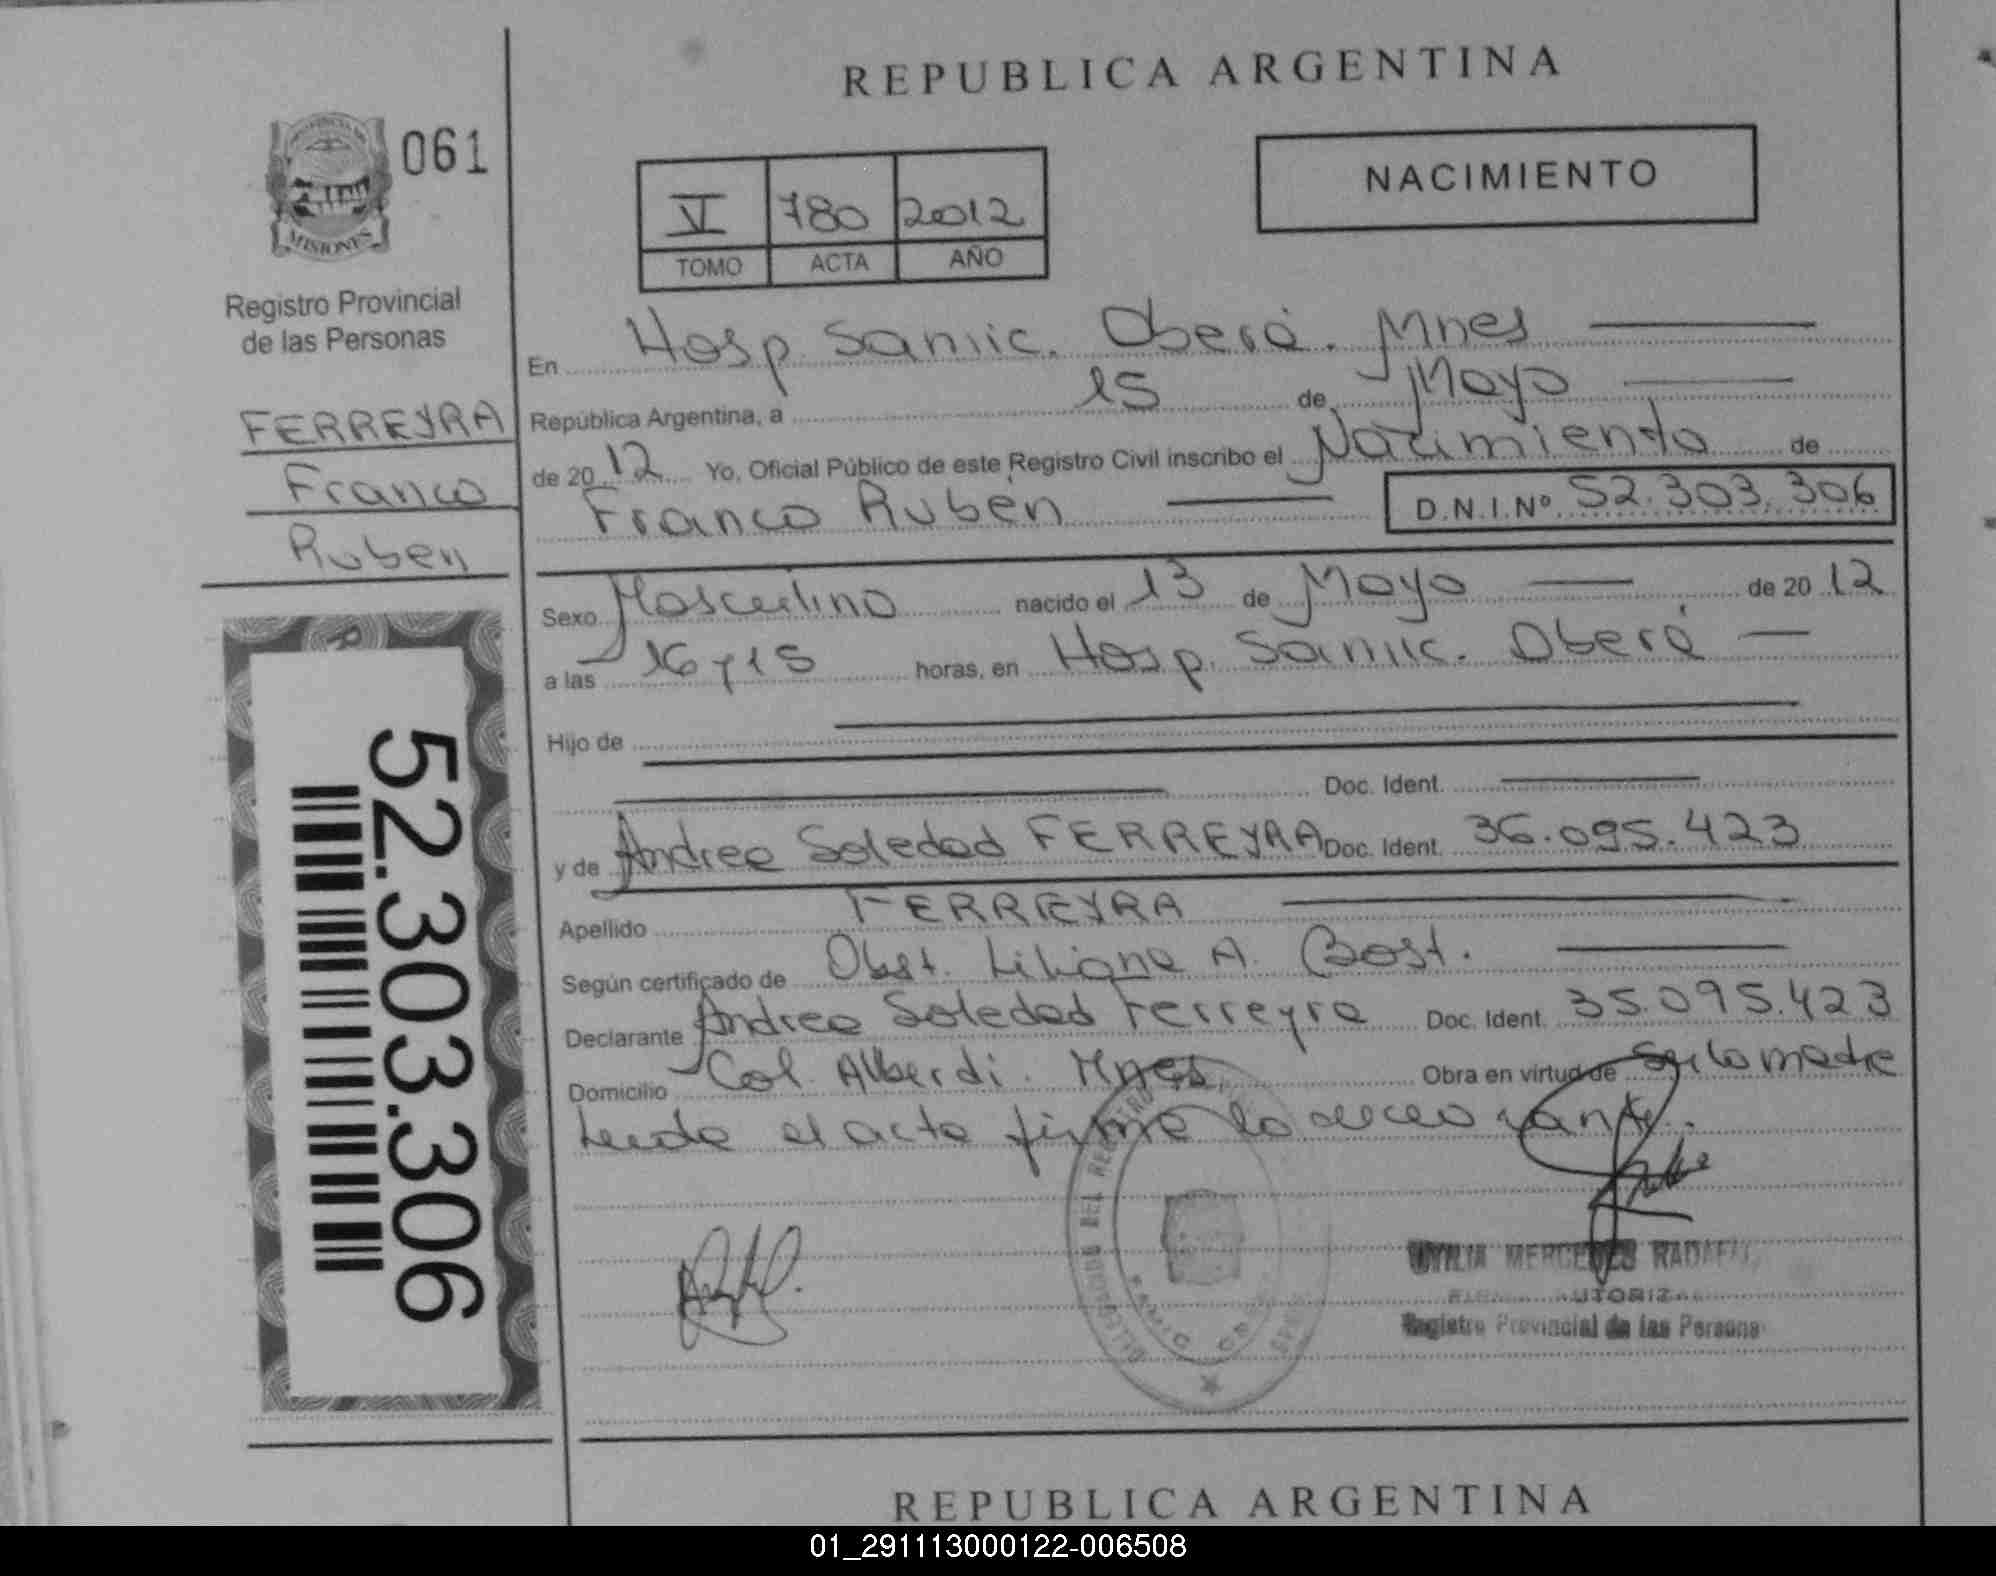 REPUBLICA ARGENTINA
061
PROVINCIA DE
MISIONES
Registro Provincial
de las Personas
FERREYRA
Franco
Ruben
52.303.306
NACIMIENTO
V 780 2012
TOMO ACTA AÑO
En Hosp. Samic. Oberá. Mnes
República Argentina, a 15 de Mayo
de 20 12 Yo, Oficial Público de este Registro Civil inscribo el Nacimiento de
Franco Rubén D.N.I.Nº 52.303.306
Sexo Masculino nacido el 13 de Mayo de 20 12
a las 16 y 15 horas, en Hosp. Samic. Oberá
Hijo de
Doc. Ident.
y de Andrea Soledad FERREYRA Doc. Ident. 36.095.423
Apellido FERREYRA
Según certificado de Obst. Liliana A. Bost.
Declarante Andrea Soledad Ferreyra Doc. Ident. 35.095.423
Domicilio Col. Alberdi. Mnes Obra en virtud de ser la madre
Leida el acta firma la declarante.
DELEGACION DEL REGISTRO
SAMIC
MERCEDES
Registro Provincial de las Persona
REPUBLICA ARGENTINA
01_291113000122-006508